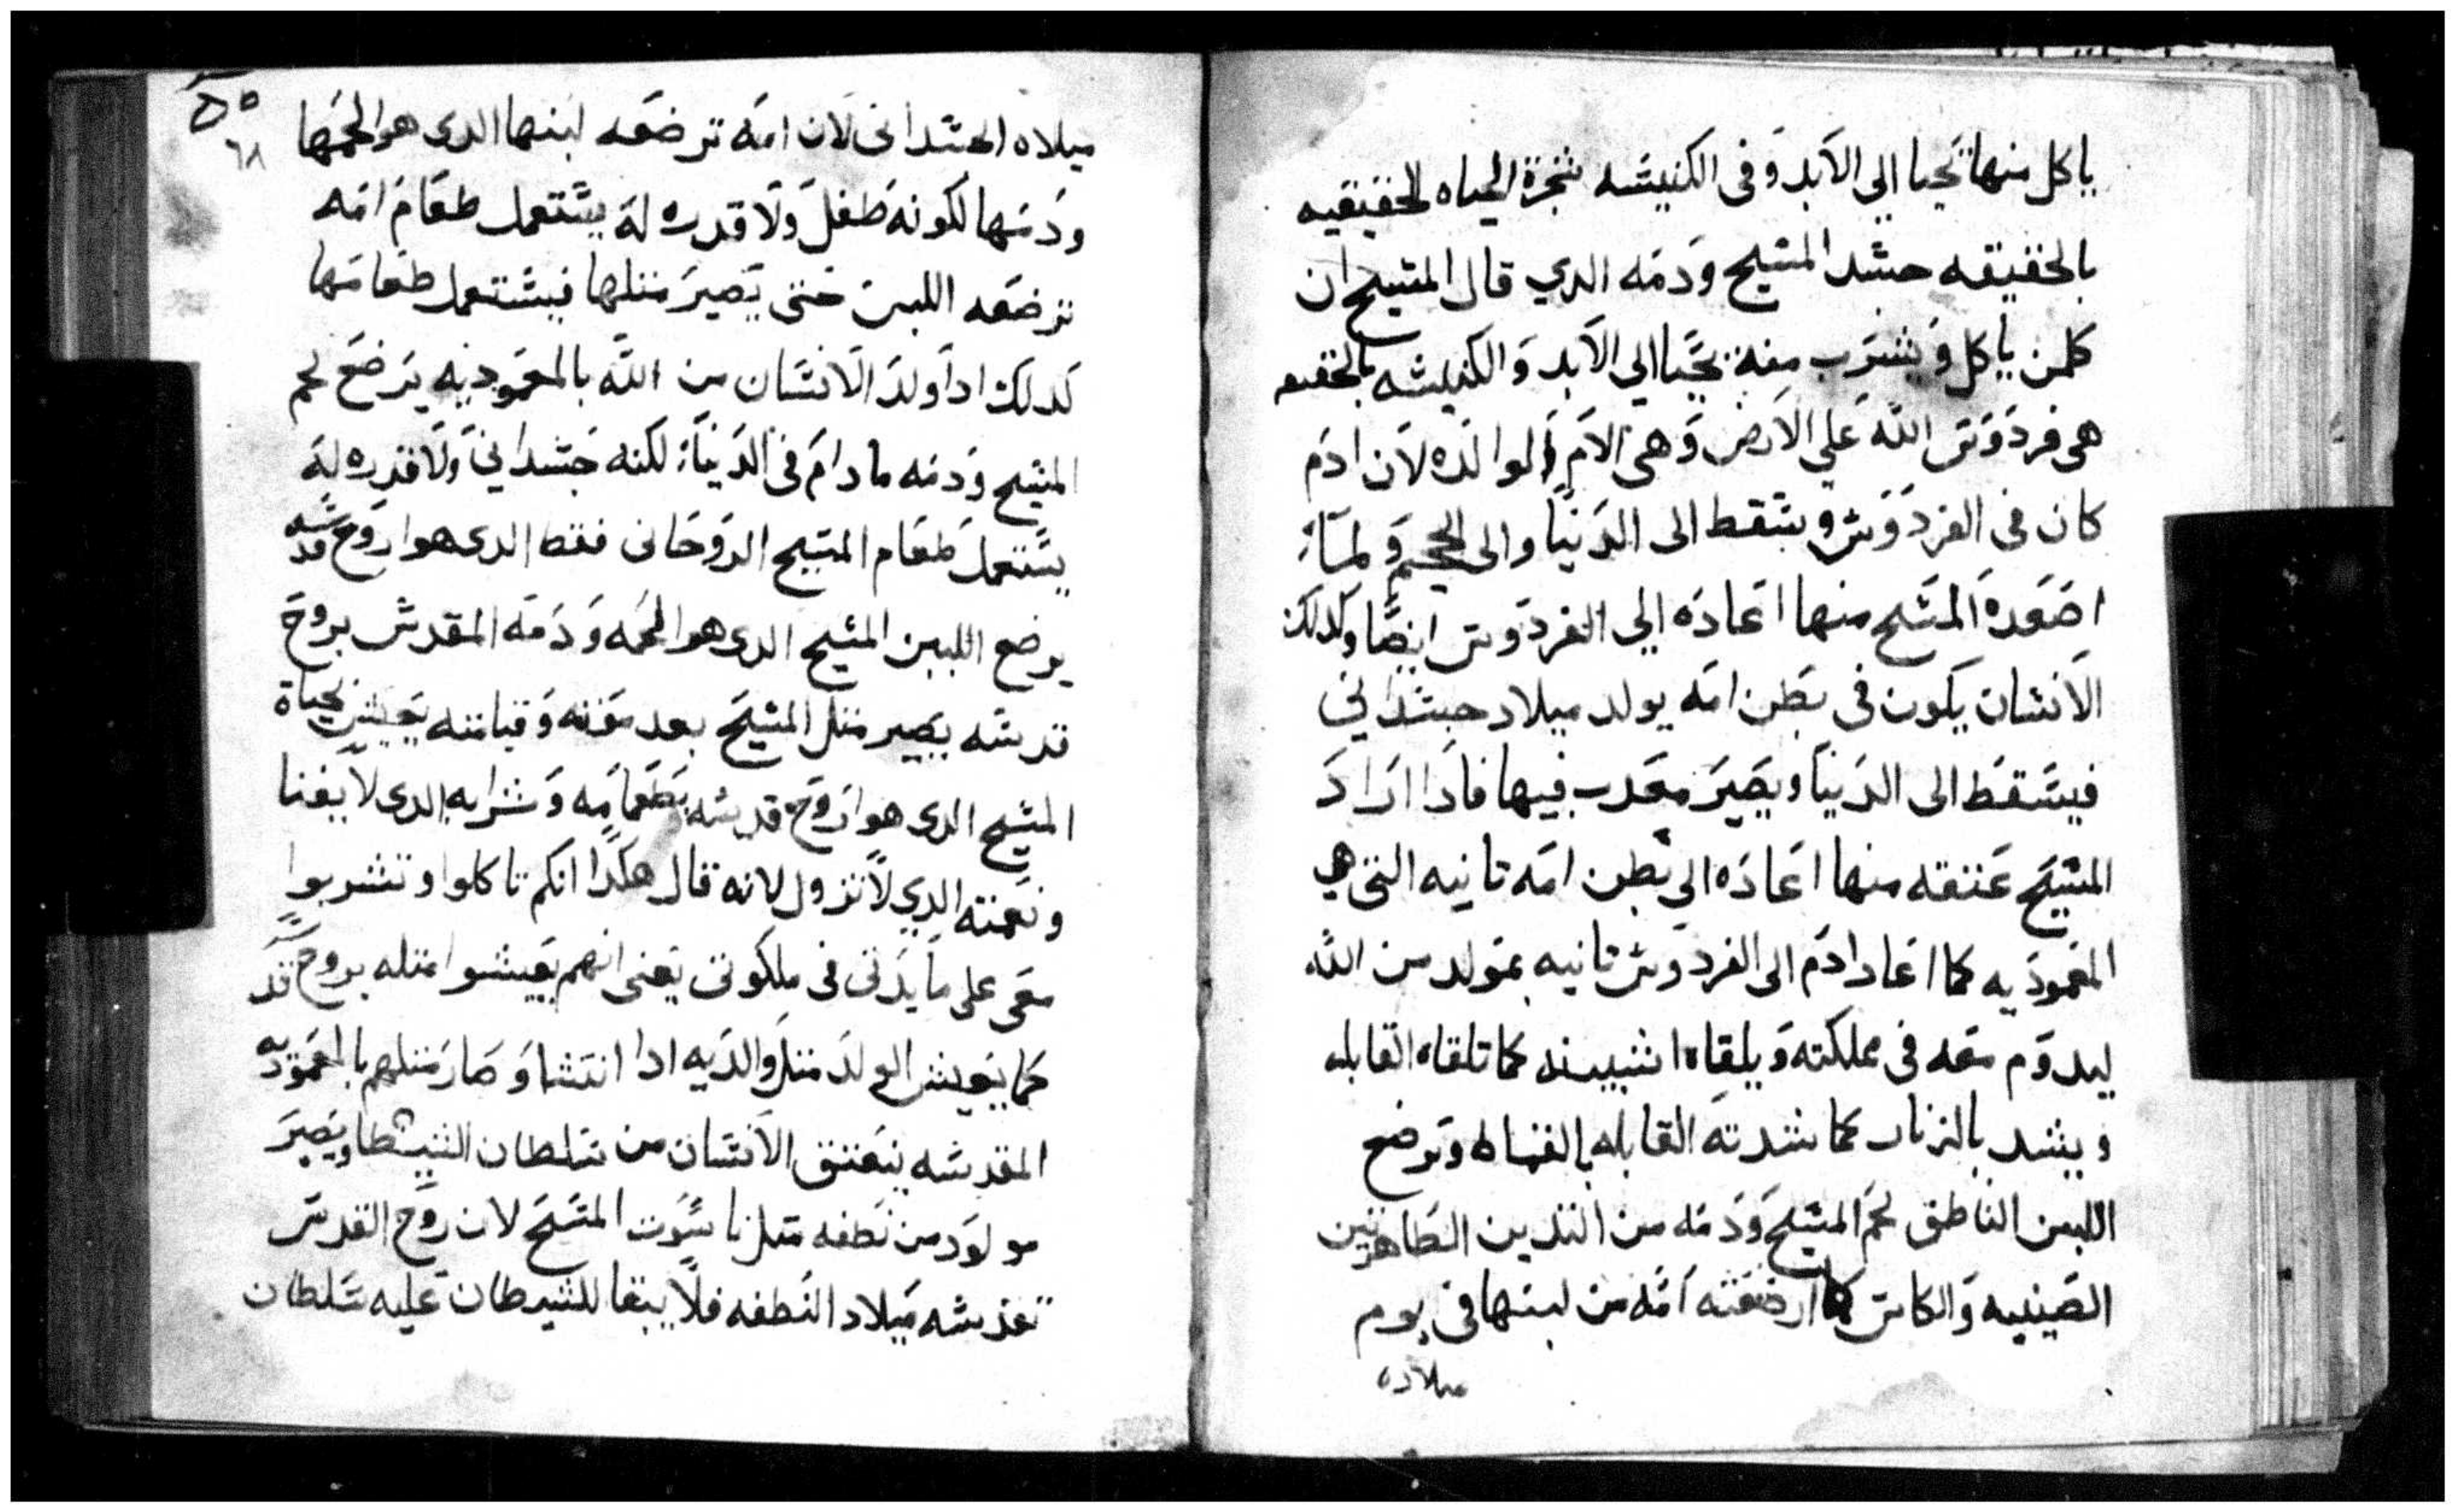 ياكل منها تحيا الي الابد وفى الكنيسه شجرة الحياه الحقيقيه
بالحقيقه جسد المسيح ودمه الدي قال المسيح ان
كلمن ياكل ويشرب منه يحيا الي الابد والكنيسه بالحقيقه
هى فردوس الله علي الارض وهى الام الوالده لان ادم
كان فى الفردوس وسقط الى الدنيا والى الجحيم ولما
اصعده المسيح منها اعاده الي الفردوس ايضا وكدلك
الانسان يكون فى بطن امه يولد ميلاد جسدانى
فيسقط الى الدنيا ويصير معدب فيها فادا اراد
المسيح عتقه منها اعاده الي بطن امه تانيه التى هي
المعموديه كما اعاد ادم الى الفردوس تانيه يتولد من الله
ليدوم معه فى مملكته ويلقاه اشبينه كما تلقاه القابله
ويشد بالزنار كما شدته القابله بالقماط وترضع
اللبن الناطق لحم المسيح ودمه من التديين الطاهرتين
الصينيه والكاس كما ارضعته امه من لبنها فى يوم
ميلاده
٥٥
٦٨
ميلاه الجسدانى لان امه ترضعه لبنها الدى هو لحمها
ودمها لكونه طفل ولا قدره له يستعمل طعام امه
ترضعه اللبن حتى يصير متلها فيستعمل طعامها
كدلك ادا ولد الانسان من الله بالمعموديه يرضع لحم
المسيح ودمه ما دام فى الدنيا لكنه جسدانى ولا قدره له
يستعمل طعام المسيح الروحانى فقط الدى هو اروح قدسه
يرضع اللبن المسيح الدى هو لحمه ودمه المقدس بروح
قدسه يصير متل المسيح بعد موته وقيامته يعيش بحياة
المسيح الدى هو اروح قدسه بطعامه وشرابه الدى لا يفنا
ونعمته الدي لا تزول لانه قال هكدا انكم تاكلوا وتشربوا
معى على مايدتى فى ملكوتى يعنى انهم يعيشوا متله بروح قد
كما يعيش الولد متل والديه ادا انتشا وصار متلهم بالمعموديه
المقدسه ينعتق الانسان من سلطان الشيطا ويصير
مولود من نطفه متل ناسوت المسيح لان روح القدس
تقدسه ميلاد النطفه فلا يبقا للشيطان عليه سلطان